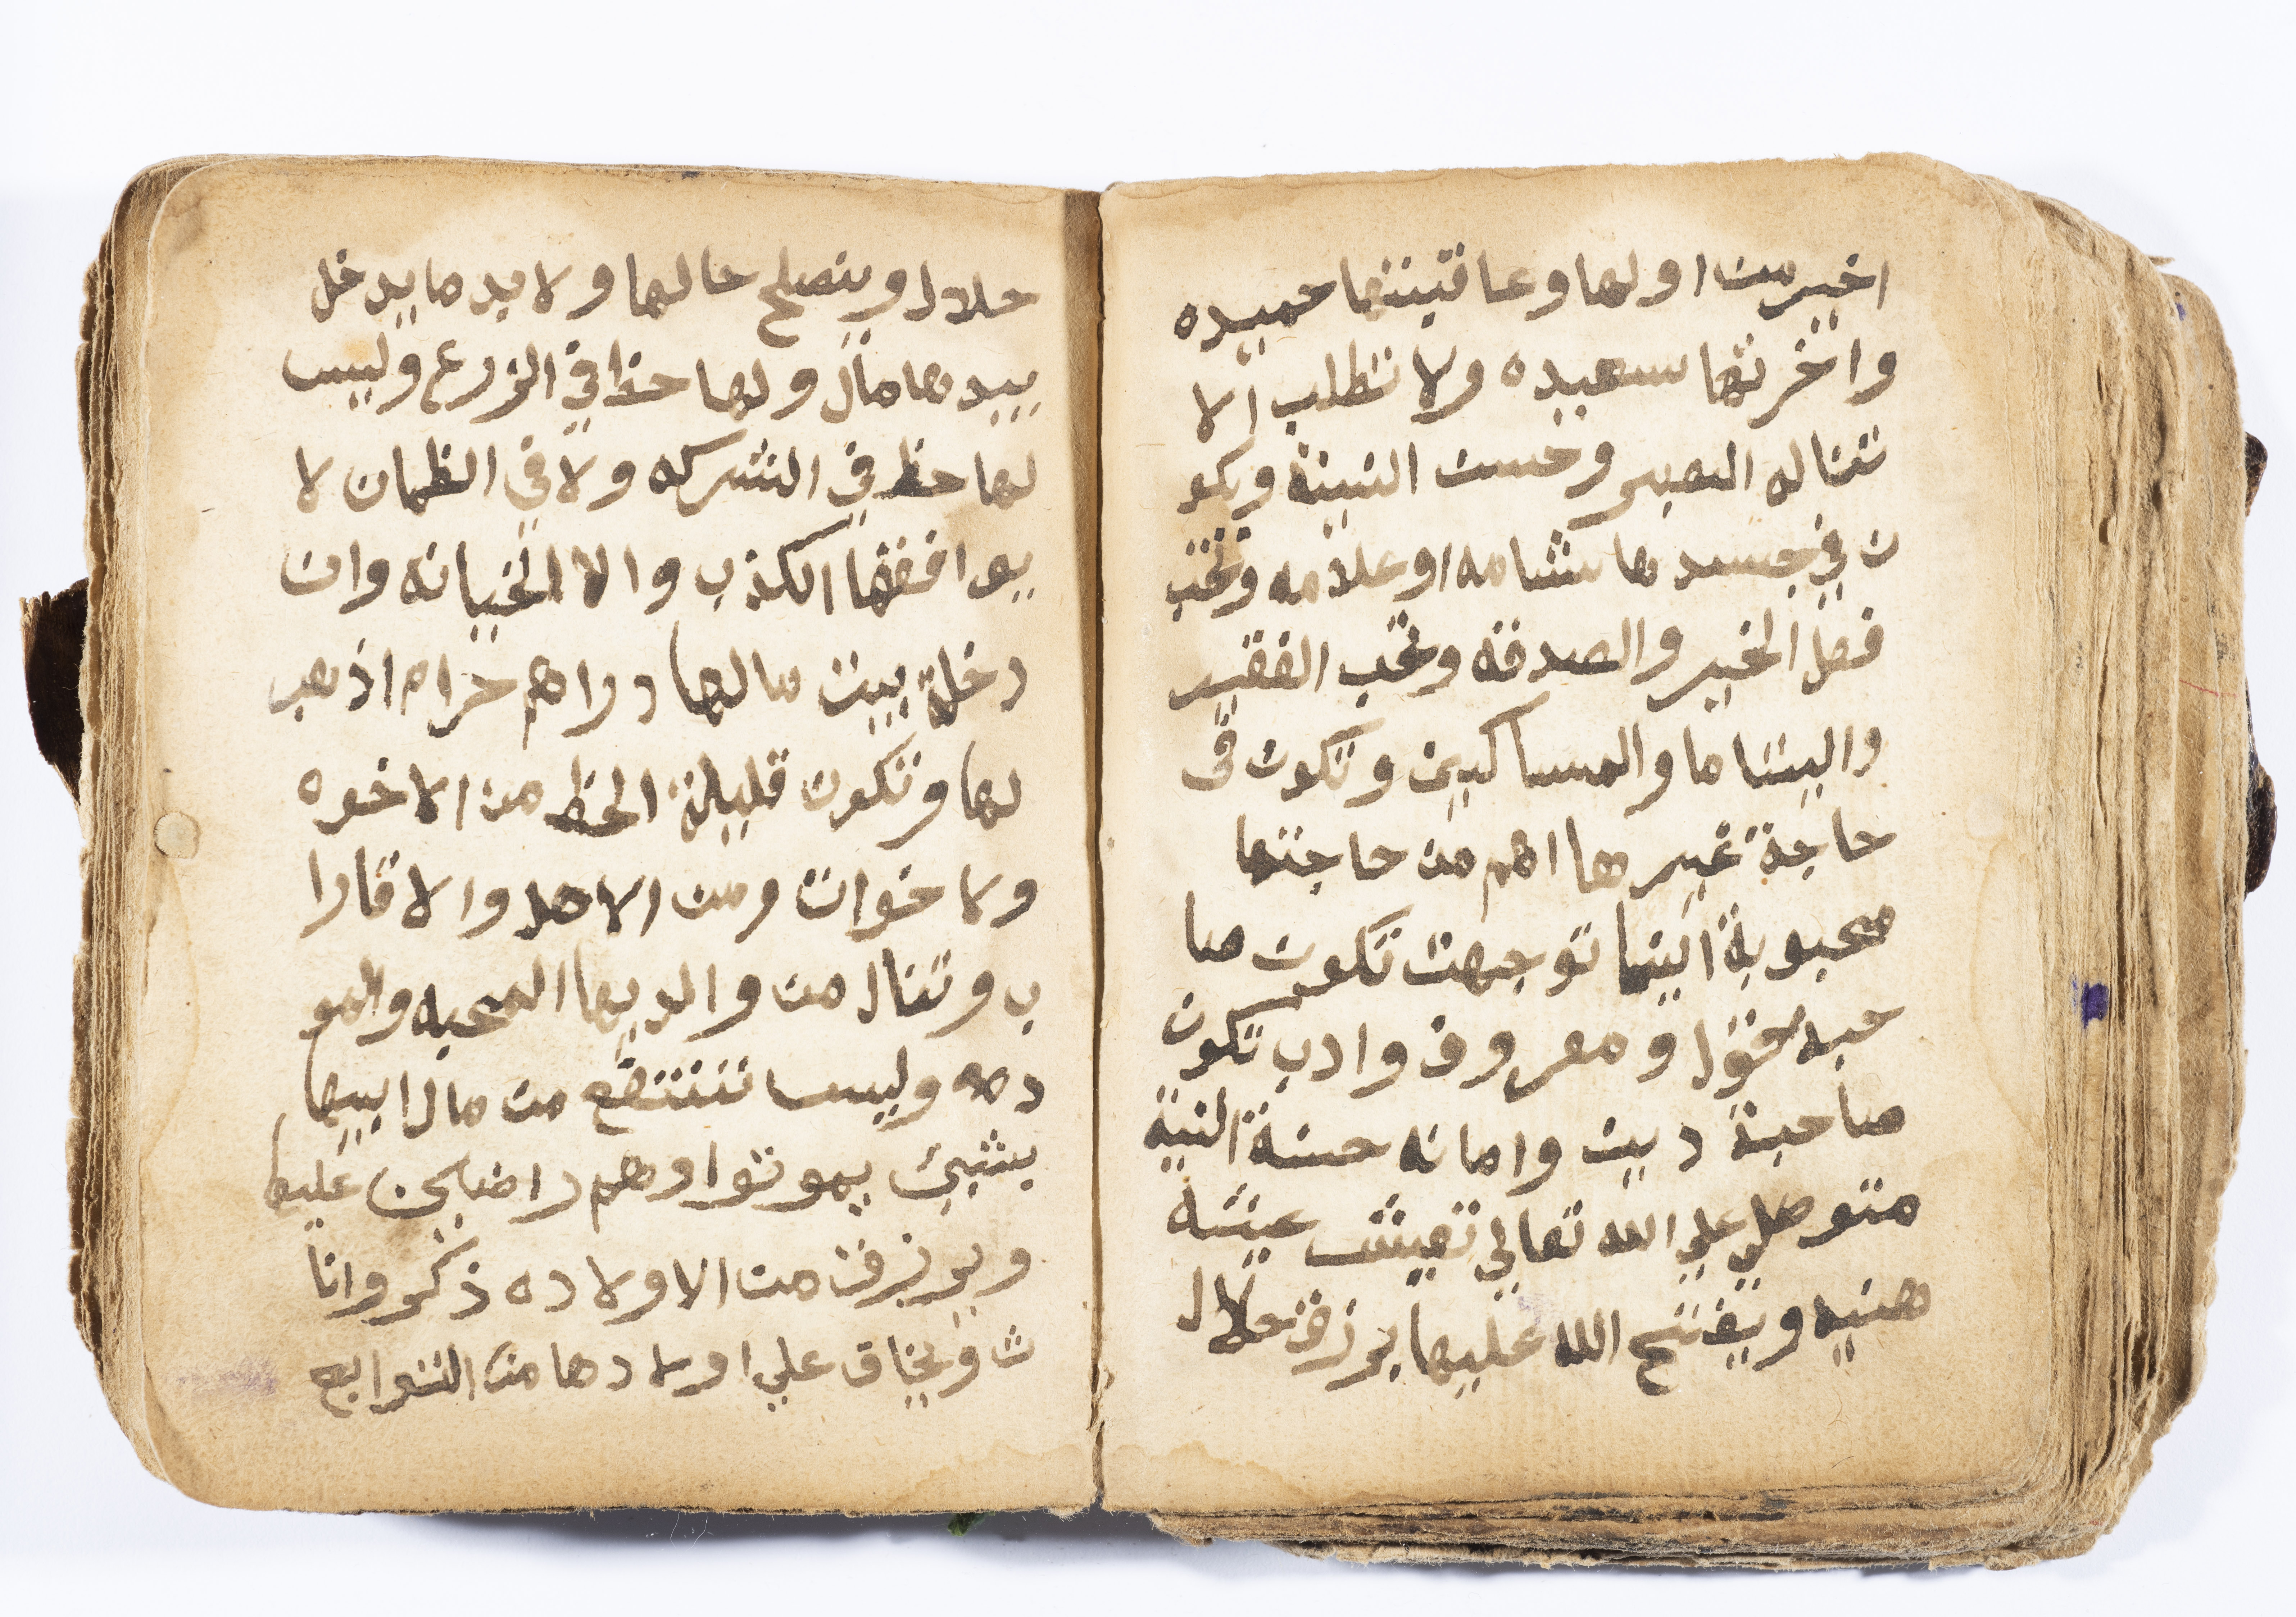 اخير من اولها وعاقبتها حميده
واخرتها سعيده ولا تطلب الا
تناله الصبر وحسن النيه ويكو
ن في جسدها شامه او علامه وتحب
فعل الخير والصدقه وتحب الفقير
واليتاما والمساكين وتكون في
حاجة غيرها اهم من حاجتها
محبوبة اينما توجهت تكون صا
حبه قول ومعروف وادب تكون
صاحبة دين وامانه حسنة النية
متوكله علي الله تعالي تعيش عيشه
هنيه ويفتح الله عليها برزق حلال
حلال وينصلح حالها ولابد ما يدخل
بيدها مال ولها حظ في الزرع وليس
لها حظ في الشركه ولا في الظمان لا
يوافقها الكذب والا الخيانه وان
دخلة بين مالها دراهم حرام اذهب
لها وتكون قليلة الحظ من الاخوه
ولاخوان ومن الاهل والاقارا
ب وتنال من والديها المحبه والمو
ده وليس تنتفع من مال ابيها
بشيئ يموتوا وهم راضين عليها
ويرزق من الاولاده ذكر وانا
ث ويخاف علي اولادها من التوابع